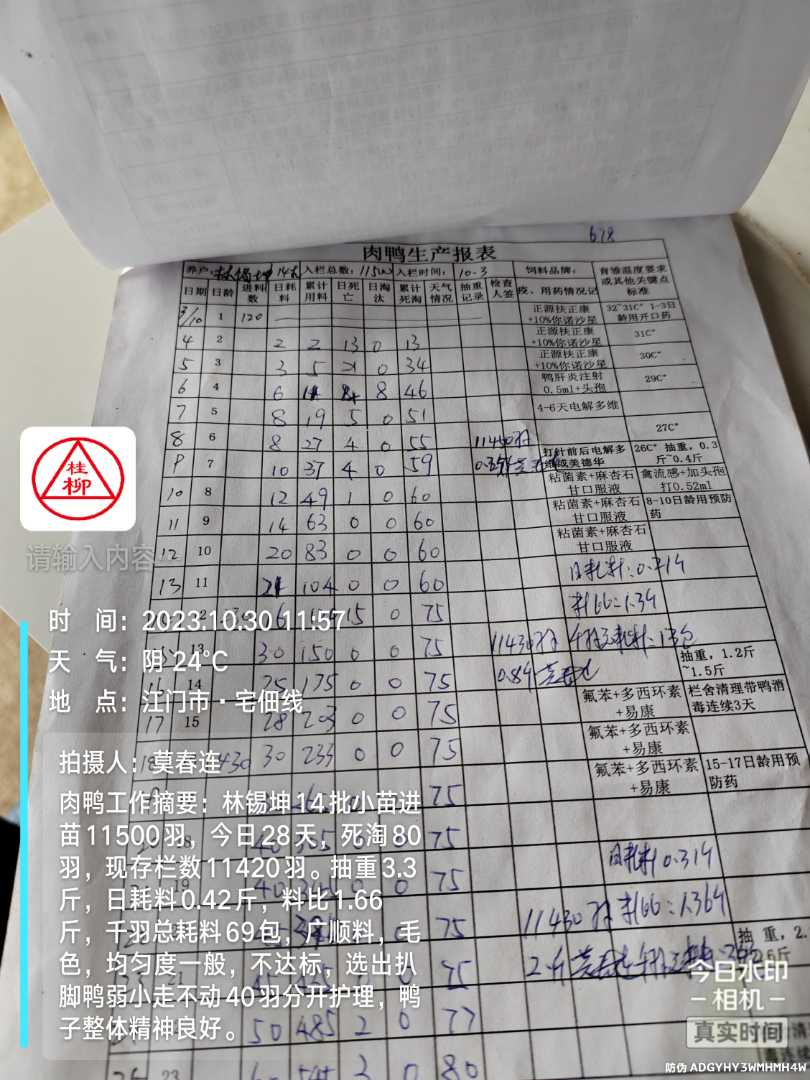 678
肉鸭生产报表
养户: 林锡坤 14批 入栏总数: 11500 入栏时间: 10.3 饲料品牌: 育雏温度要求或其他关键点标准
日期 日龄 进料数 日耗料 累计用料 日死亡 日淘汰 累计死淘 天气情况 抽重记录 检查人签 疫、用药情况记
3/10 1 120 正源扶正康+10%你诺沙星 32~31C° 1-3日龄用开口药
4 2 2 2 13 0 13 正源扶正康+10%你诺沙星 31C°
5 3 3 5 21 0 34 正源扶正康+10%你诺沙星 30C°
6 4 6 11 8 46 鸭肝炎注射0.5ml+头孢 29C°
7 5 8 19 5 0 51 4-6天电解多维
8 6 8 27 4 0 55 11450羽 27C°
9 7 10 37 4 0 59 打针前后电解多维或美德华 26C° 抽重,0.3斤~0.4斤
10 8 12 49 1 0 60 粘菌素+麻杏石甘口服液 禽流感+加头孢打0.52ml
11 9 14 63 0 0 60 粘菌素+麻杏石甘口服液 8-10日龄用预防药
12 10 20 83 0 0 60 粘菌素+麻杏石甘口服液
13 11 21 104 0 0 60 日耗料:0.214
15 0 75 料比:1.34
13 30 150 0 0 75 11430羽
14 25 175 0 0 75 0.8斤 抽重,1.2斤~1.5斤
17 15 28 203 0 0 75 氟苯+多西环素+易康 栏舍清理带鸭消毒连续3天
18 430 30 233 0 0 75 氟苯+多西环素+易康
75 氟苯+多西环素+易康 15-17日龄用预防药
75
19 40 0 75 日耗料 0.314
75 11430羽 料比:1.364
75 2斤 抽重,2.
50 485 2 0 77
23 545 3 0 80
桂柳
请输入内容
时 间: 2023.10.30 11:57
天 气: 阴 24℃
地 点: 江门市·宅佃线
拍摄人: 莫春连
肉鸭工作摘要: 林锡坤14批小苗进
苗11500羽,今日28天,死淘80
羽,现存栏数11420羽。抽重3.3
斤,日耗料0.42斤,料比1.66
斤,千羽总耗料69包,广顺料,毛
色,均匀度一般,不达标,选出扒
脚鸭弱小走不动40羽分开护理,鸭
子整体精神良好。
今日水印
相机
真实时间
防伪 ADGYHY3WMHMH4W